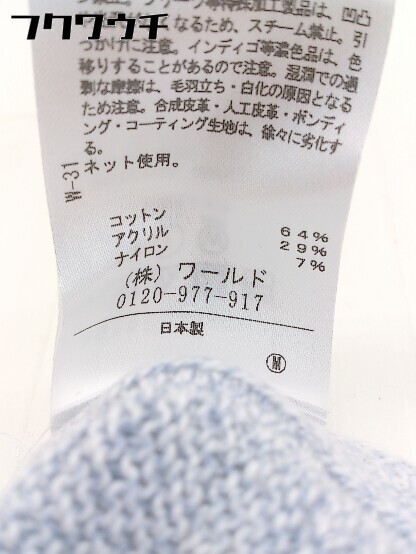 フクウクチ
加工製品は、凹凸
なるため、スチーム禁止。引
っかけに注意。インディゴ等濃色品は、色
移りすることがあるので注意。湿潤での過
剰な摩擦は、毛羽立ち・白化の原因となる
ため注意。合成皮革・人工皮革・ボンディ
ング・コーティング生地は、徐々に劣化す
る。
ネット使用。
W-31
コットン 64%
アクリル 29%
ナイロン 7%
(株) ワールド
0120-977-917
日本製
M